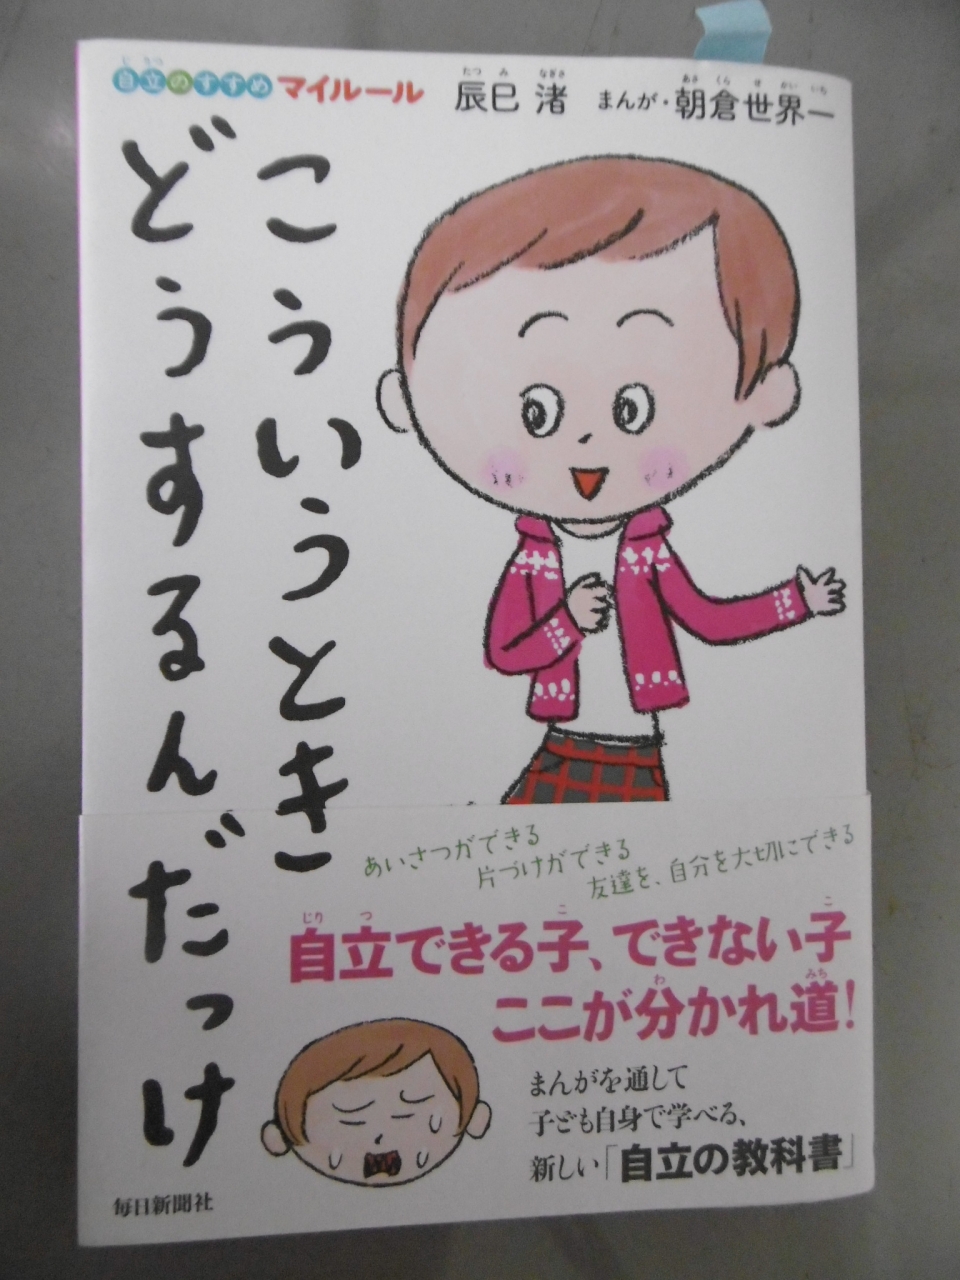 自立のすすめ マイルール
辰巳 渚
まんが・朝倉世界一
こういうとき
どうするんだっけ
あいさつができる
片づけができる
友達を、自分を大切にできる
自立できる子、できない子
ここが分かれ道!
まんがを通して
子ども自身で学べる、
新しい「自立の教科書」
毎日新聞社